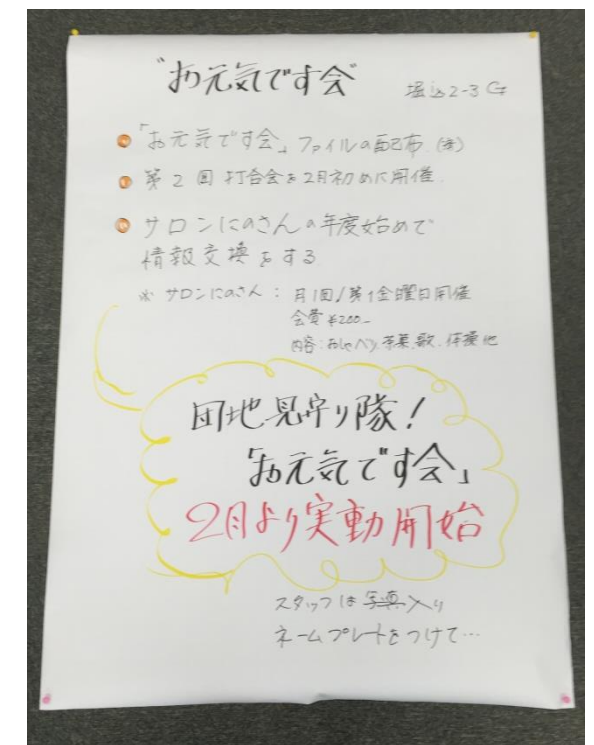 "お元気です会"
堀込2-3 G
「お元気です会」ファイルの配布.
第2回 打合会を2月初めに開催.
サロンにのさんの年度始めで
情報交換をする
※ サロンにのさん: 月1回/第1金曜日開催
会費 ¥200_
内容:おしゃべり,茶菓,歌.体操他
団地見守り隊!
「お元気です会」
2月より実動開始
スタッフは写真入り
ネームプレートをつけて…